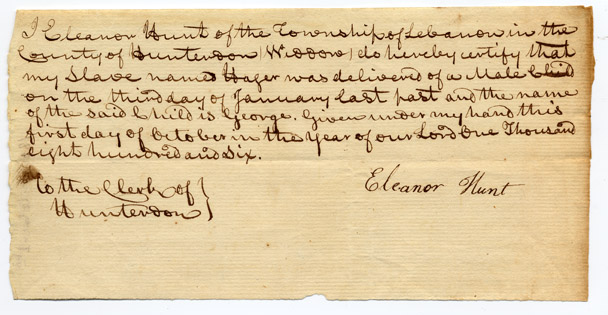 I Eleanor Hunt of the Township of Lebanon in the
County of Hunterdon (Widdow) do hereby certify that
my Slave named Hager was delivered of a Male Child
on the third day of January last past and the name
of the said Child is George. Given under my hand this
first day of October in the Year of our Lord One Thousand
eight hundred and six.
To the Clerk of }
Hunterdon
Eleanor Hunt